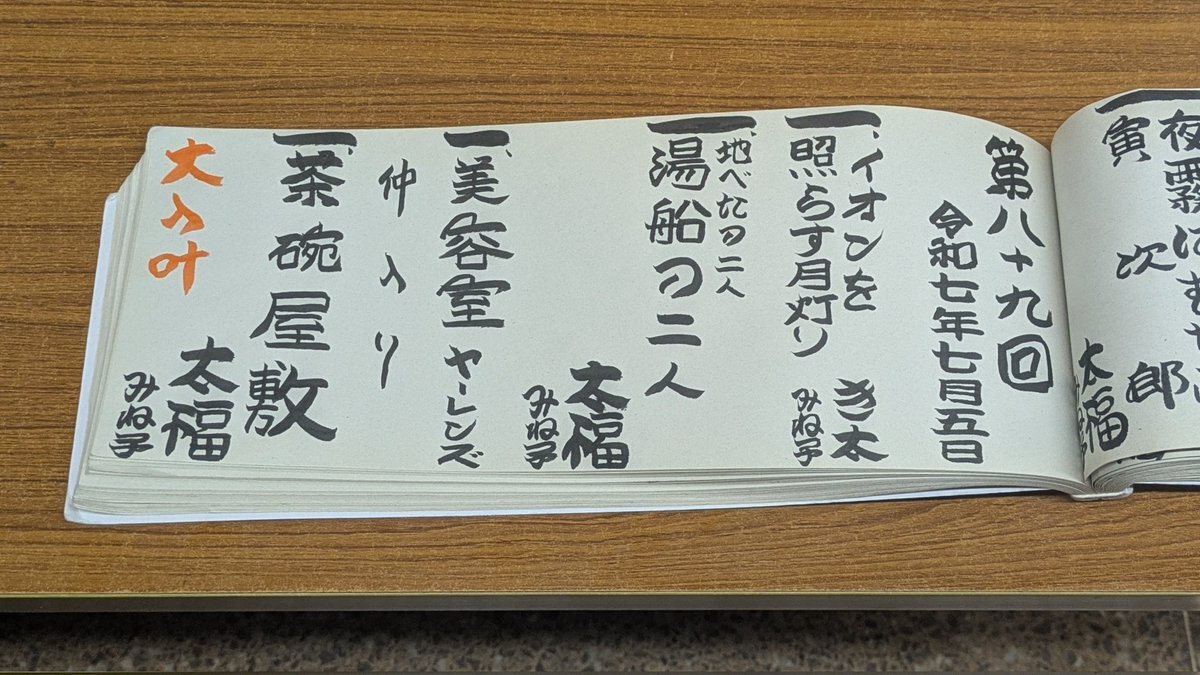 夜霧に
寅次郎
太福
第八十九回
令和七年七月五日
一、イオンを
照らす月灯り
き太
みね子
一、地べたの二人
湯船の二人
太福
みね子
一、美容室
ヤーレンズ
仲入り
一、茶碗屋敷
太福
みね子
大入叶